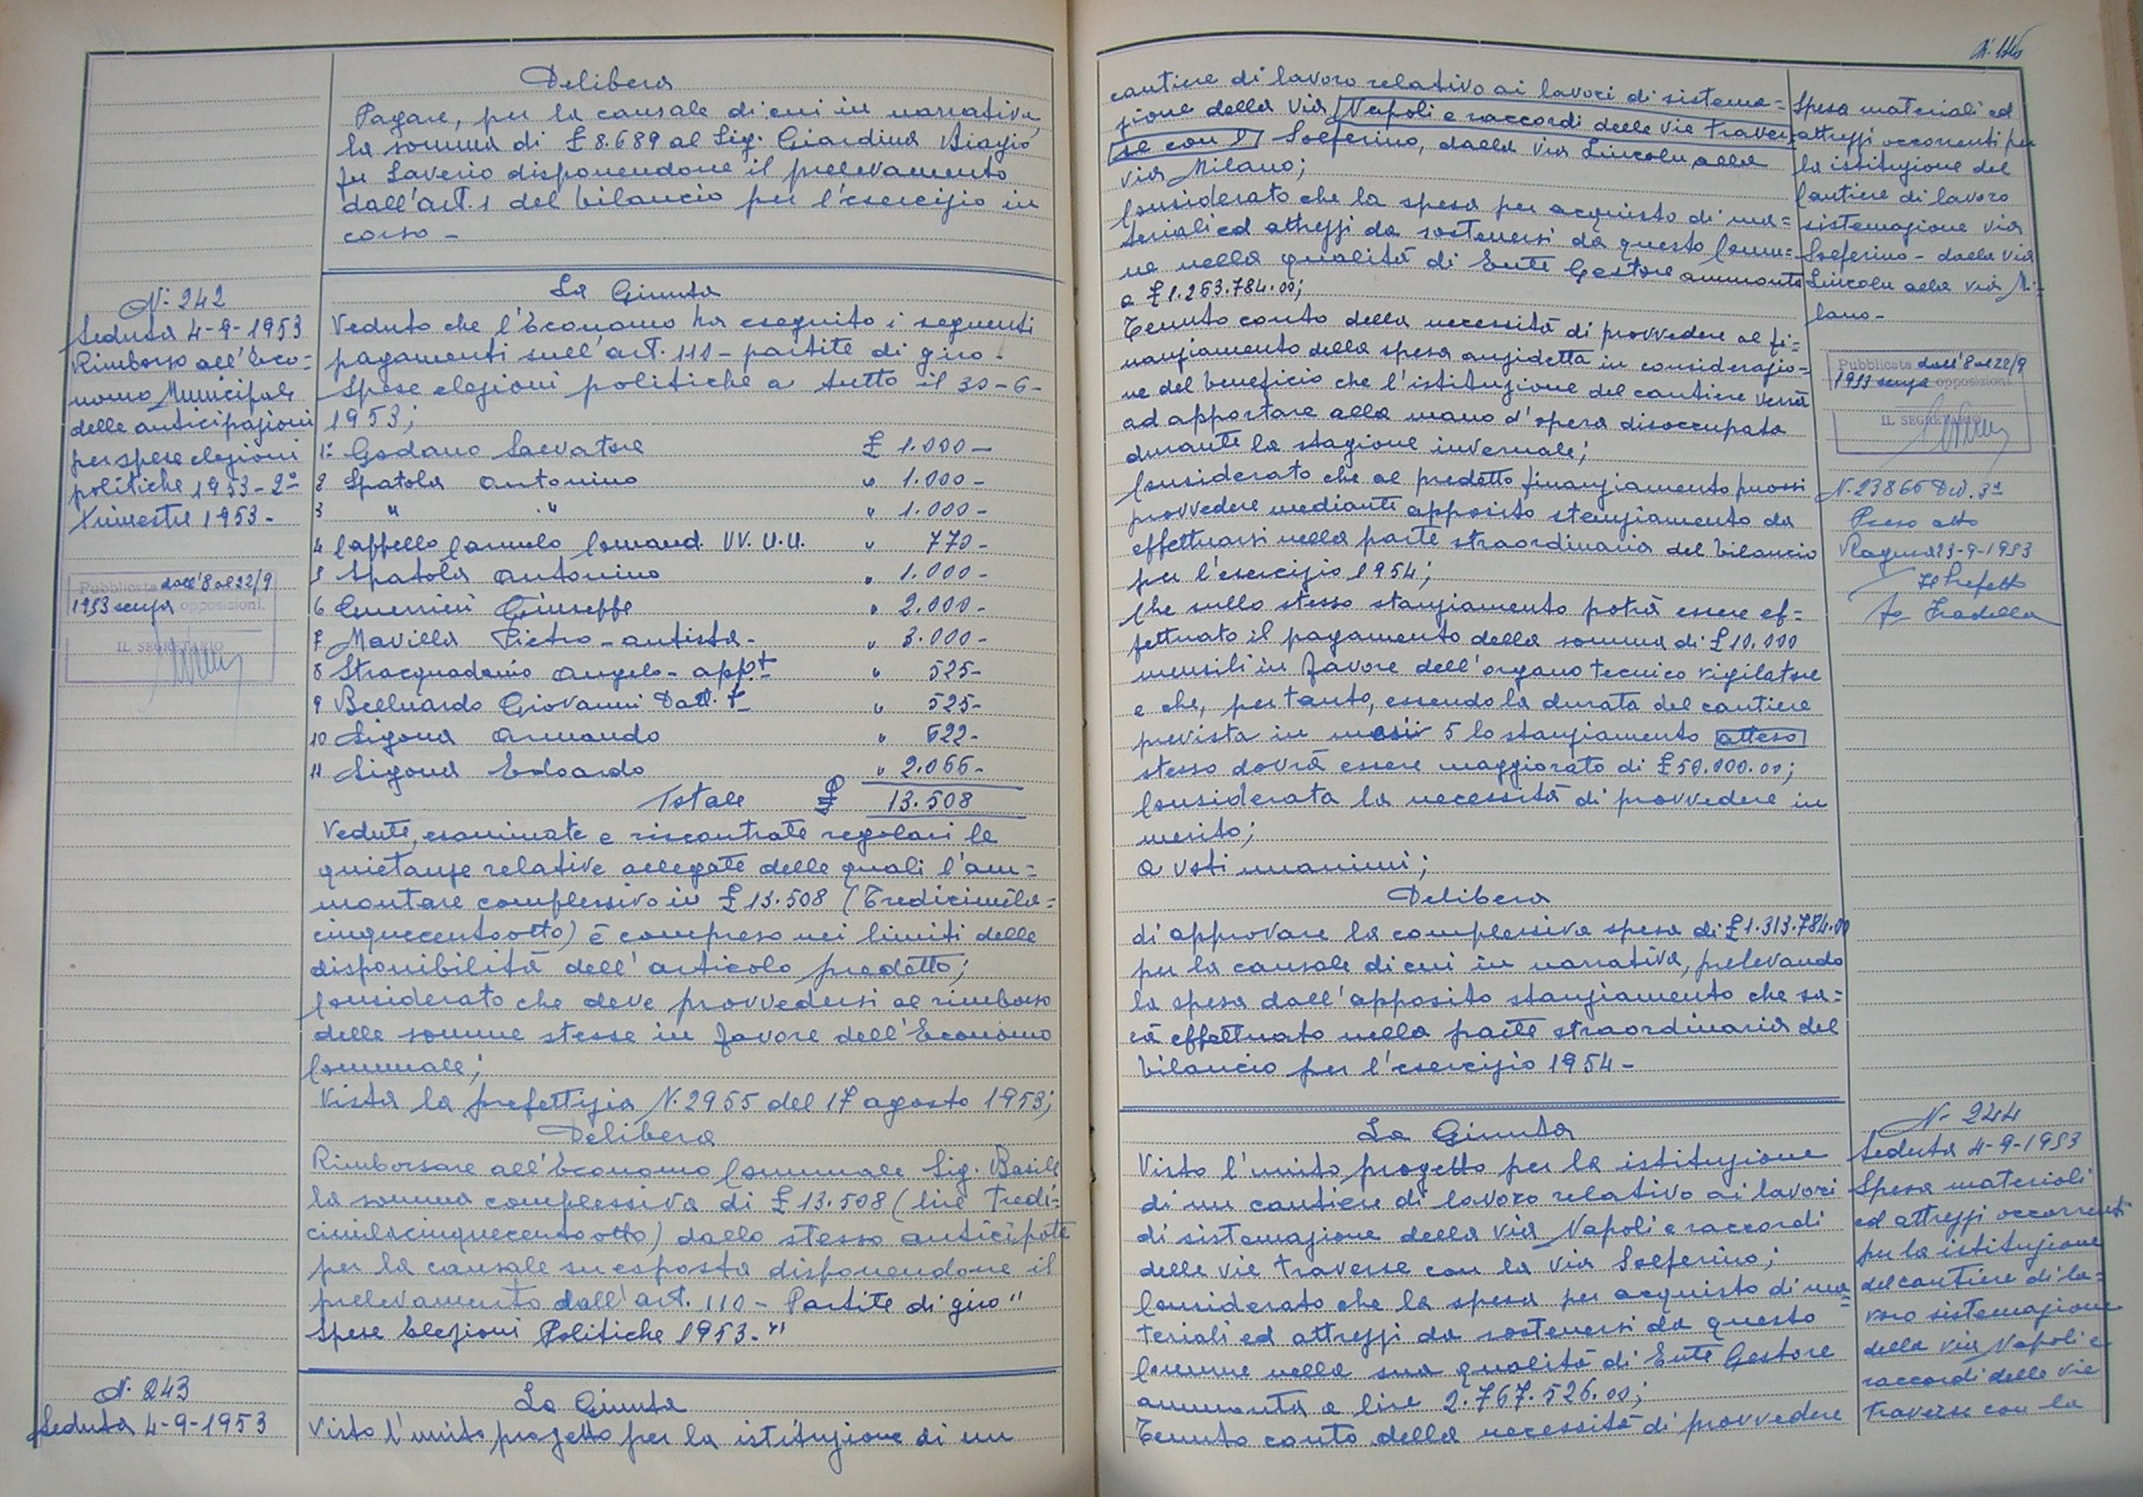 Delibera
Pagare, per la causale di cui in narrativa,
la somma di £ 8.689 al Sig. Giardina Biagio
fu Saverio disponendone il prelevamento
dall'art. 1 del bilancio per l'esercizio in
corso -
N. 242
Seduta 4-9-1953
Rimborso all'Eco=
nomo Municipale
delle anticipazioni
per spese elezioni
politiche 1953 - 2°
trimestre 1953 -
Pubblicata dall'8 al 22/9
1953 senza opposizioni.
IL SEGRETARIO
La Giunta
Veduto che l'Economo ha eseguito i seguenti
pagamenti sull'art. 110 - partite di giro -
Spese elezioni politiche a tutto il 30-6-
1953;
1° Godano Salvatore £ 1.000 -
2 Spatola Antonino " 1.000 -
3 " " " 1.000 -
4 Cappello Carmelo Comand. VV. U.U. " 770 -
5 Spatola Antonino " 1.000 -
6 Guerrieri Giuseppe " 2.000 -
7 Mavilla Pietro - autista - " 3.000 -
8 Stracquadanio Angelo - app.t " 525 -
9 Belluardo Giovanni Datt. " 525 -
10 Sigona Armando " 622 -
11 Sigona Edoardo " 2.066 -
Totale £ 13.508
Vedute, esaminate e riscontrate regolari le
quietanze relative allegate delle quali l'am=
montare complessivo in £ 13.508 (Tredicimila=
cinquecentootto) è compreso nei limiti delle
disponibilità dell'articolo predetto;
Considerato che deve provvedersi al rimborso
delle somme stesse in favore dell'Economo
Comunale;
Vista la prefettizia N. 2955 del 17 agosto 1953;
Delibera
Rimborsare all'Economo Comunale Sig. Basile
la somma complessiva di £ 13.508 (lire Tredi=
cimilacinquecentootto) dallo stesso anticipate
per la causale su esposta disponendone il
prelevamento dall'art. 110 - Partite di giro "
Spese Elezioni Politiche 1953. "
N. 243
Seduta 4-9-1953
La Giunta
Visto l'unito progetto per la istituzione di un
cantiere di lavoro relativo ai lavori di sistema=
zione della via Napoli e raccordi delle vie traver
se con la Solferino, dalla via Lincoln alla
via Milano;
Considerato che la spesa per acquisto di ma=
teriali ed attrezzi da sostenersi da questo Comu=
ne nella qualità di Ente Gestore ammonta
a £ 1.263.784.00;
Tenuto conto della necessità di provvedere al fi=
nanziamento della spesa anzidetta in considerazio=
ne del beneficio che l'istituzione del cantiere verrà
ad apportare alla mano d'opera disoccupata
durante la stagione invernale;
Considerato che al predetto finanziamento puossi
provvedere mediante apposito stanziamento da
effettuarsi nella parte straordinaria del bilancio
per l'esercizio 1954;
Che sullo stesso stanziamento potrà essere ef=
fettuato il pagamento della somma di £ 10.000
mensili in favore dell'organo tecnico vigilatore
e che, pertanto, essendo la durata del cantiere
prevista in mesi 5 lo stanziamento atteso
stesso dovrà essere maggiorato di £ 50.000.00;
Considerata la necessità di provvedere in
merito;
A voti unanimi;
Delibera
di approvare la complessiva spesa di £ 1.313.784.00
per la causale di cui in narrativa, prelevando
la spesa dall'apposito stanziamento che sa=
rà effettuato nella parte straordinaria del
bilancio per l'esercizio 1954 -
Spesa materiali ed
attrezzi occorrenti per
la istituzione del
Cantiere di lavoro
sistemazione via
Solferino - dalla via
Lincoln alla via Mi=
lano -
Pubblicata dall'8 al 22/9
1953 senza opposizioni
IL SEGRETARIO
N. 23866 Div. 3ª
Preso atto
Ragusa 23-9-1953
Il Prefetto
La Giunta
Visto l'unito progetto per la istituzione
di un cantiere di lavoro relativo ai lavori
di sistemazione della via Napoli e raccordi
delle vie traverse con la via Solferino;
Considerato che la spesa per acquisto di ma=
teriali ed attrezzi da sostenersi da questo
Comune nella sua qualità di Ente Gestore
ammonta a lire 2.767.526.00;
Tenuto conto della necessità di provvedere
N. 244
Seduta 4-9-1953
Spesa materiali
ed attrezzi occorrenti
per la istituzione
del cantiere di la=
voro sistemazione
della via Napoli e
raccordi delle vie
traverse con la